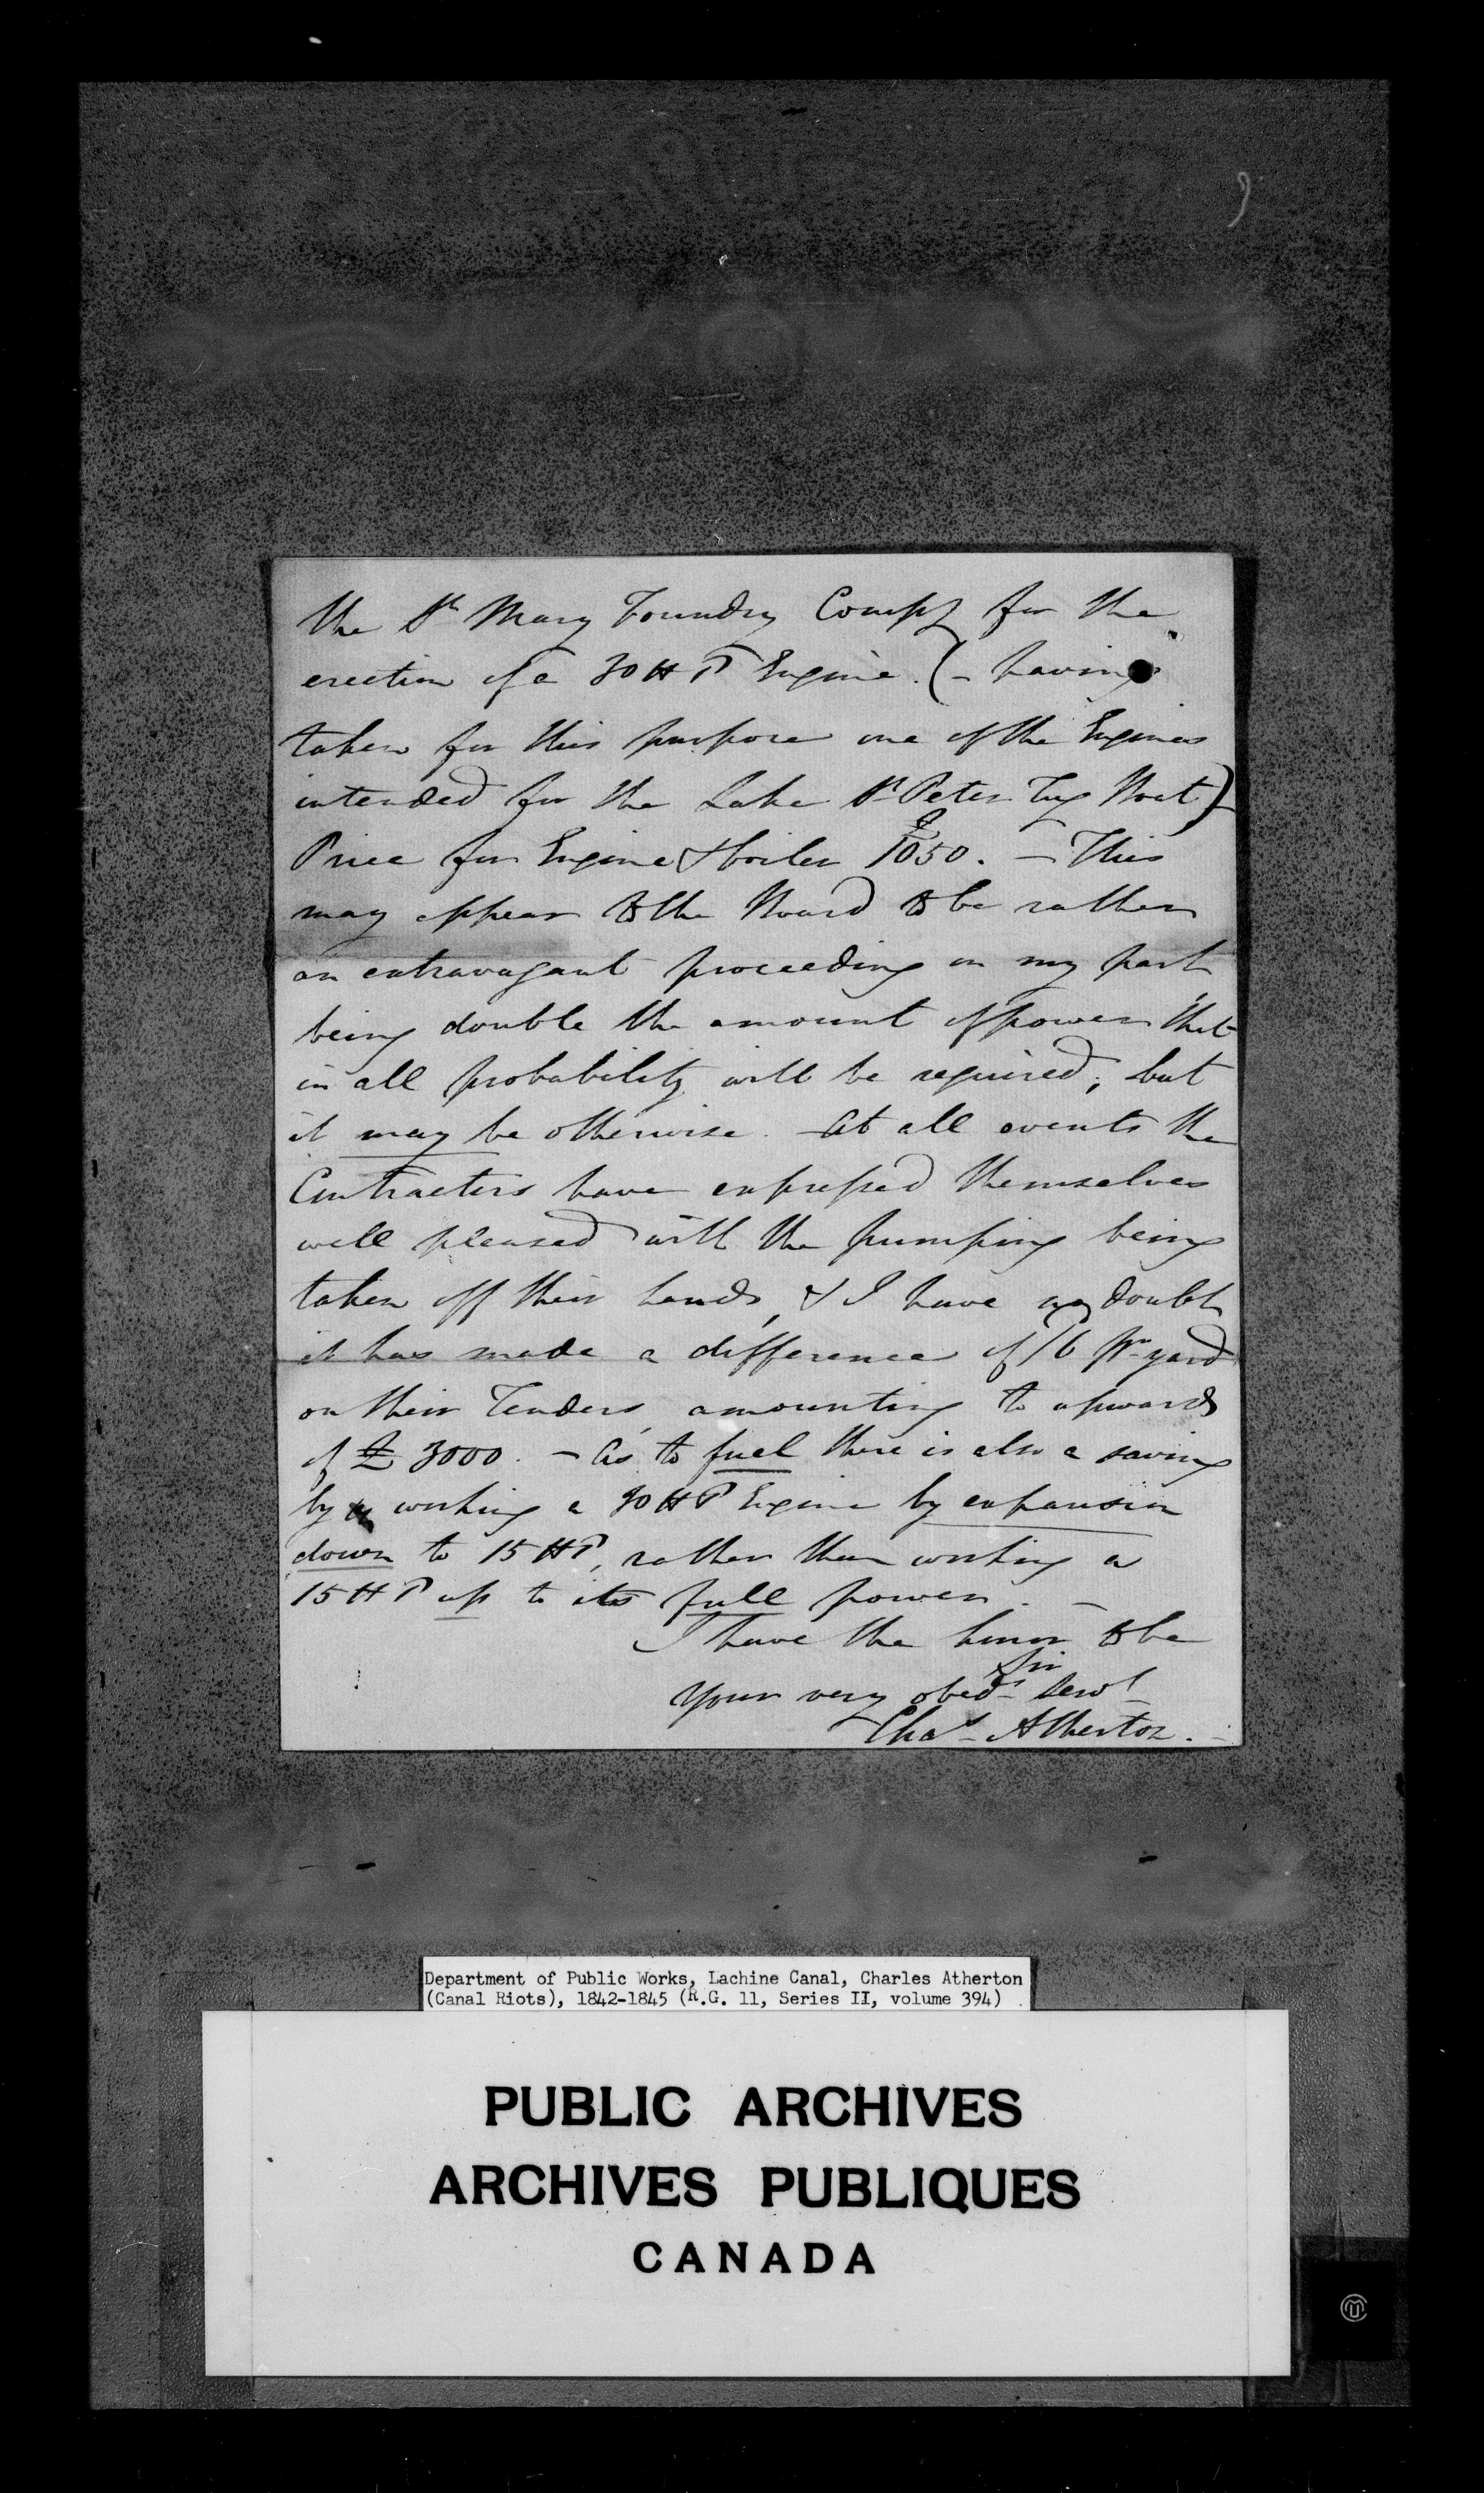 the St Mary Foundry Compy for the
erection of a 30 H P Engine. (- having
taken for this purpose one of the Engines
intended for the Lake St Peter Tug Boat)
Price for Engine & boiler £1050. - This
may appear to the Board to be rather
an extravagant proceeding on my part
being double the amount of power that
in all probability will be required; but
it may be otherwise. - At all events the
Contractors have expressed themselves
well pleased with the pumping being
taken off their hands, & I have no doubt
it has made a difference of /6 pr yard
on their Tenders, amounting to upwards
of £ 3000. - As to fuel there is also a saving
by working a 30 H P Engine by expansion
down to 15 H P, rather than working a
15 H P up to its full power. -
I have the honor to be
Sir
Your very obedt Servt
Chas Atherton.
Department of Public Works, Lachine Canal, Charles Atherton
(Canal Riots), 1842-1845 (R.G. 11, Series II, volume 394)
PUBLIC ARCHIVES
ARCHIVES PUBLIQUES
CANADA